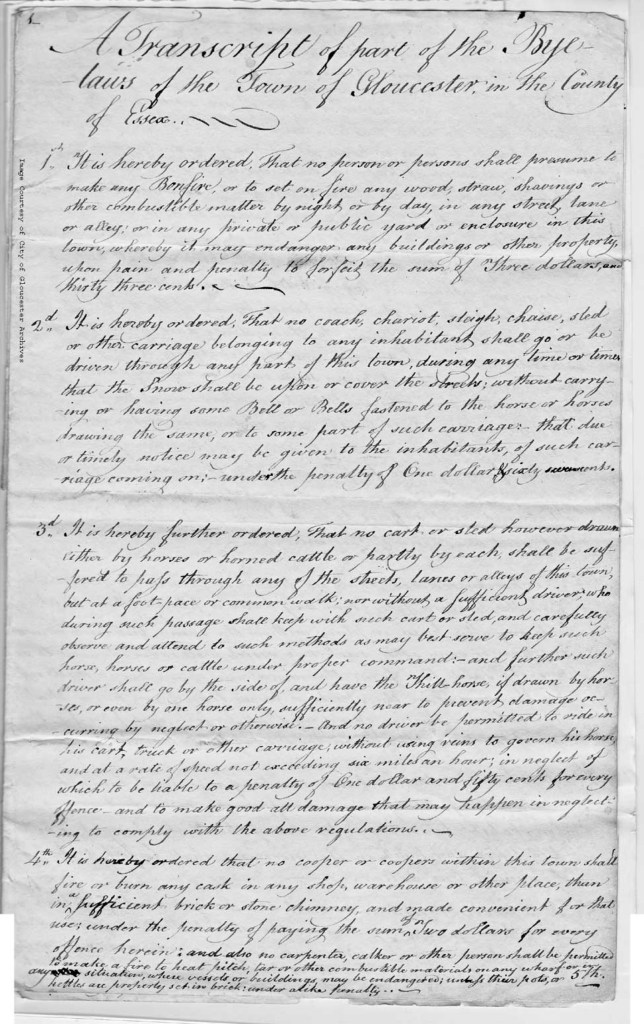 1
A Transcript of part of the Bye-
-laws of the Town of Gloucester, in the County
of Essex.
1st. It is hereby ordered, That no person or persons shall presume to
make any Bonfire, or to set on fire any wood, straw, shavings or
other combustible matter by night or by day, in any street, lane
or alley; or in any private or public yard or enclosure in this
town, whereby it may endanger any buildings or other property,
upon pain and penalty to forfeit the sum of Three dollars, and
thirty three cents.
2d. It is hereby ordered, That no coach, chariot, sleigh, chaise, sled
or other carriage belonging to any inhabitant shall go or be
driven through any part of this town, during any time or times
that the Snow shall be upon or cover the streets; without carry-
ing or having some Bell or Bells fastened to the horse or horses
drawing the same, or to some part of such carriage:- that due
or timely notice may be given to the inhabitants, of such car-
riage coming on:- under the penalty of One dollar & sixty seven cents.
3d. It is hereby further ordered, That no cart or sled however drawn
either by horses or horned cattle or partly by each, shall be suf-
-fered to pass through any of the streets, lanes or alleys of this town;
but at a foot-pace or common walk; nor without a sufficient driver who
during such passage shall keep with such cart or sled, and carefully
observe and attend to such methods as may best serve to keep such
horse, horses or cattle under proper command:- and further such
driver shall go by the side of, and have the Thill-horse, if drawn by hor-
ses, or even by one horse only, sufficiently near to prevent damage oc-
curring by neglect or otherwise.- And no driver be permitted to ride in
his cart, truck or other carriage; without using reins to govern his horse;
and at a rate of speed not exceeding six miles an hour; in neglect of
which to be liable to a penalty of One dollar and fifty cents for every
offence - and to make good all damage that may happen in neglect-
ing to comply with the above regulations.
4th. It is hereby ordered that no cooper or coopers within this town shall
fire or burn any cask in any shop, warehouse or other place, than
in a sufficient brick or stone chimney, and made convenient for that
use; under the penalty of paying the sum of Two dollars for every
offence herein: and also no carpenter, calker or other person shall be permitted
to make a fire to heat pitch, tar or other combustible materials on any wharf or in
any situation, where vessels or buildings, may be endangered; unless their pots, or 5th.
kettles are properly set in brick: under a like penalty.
Image Courtesy of City of Gloucester Archives